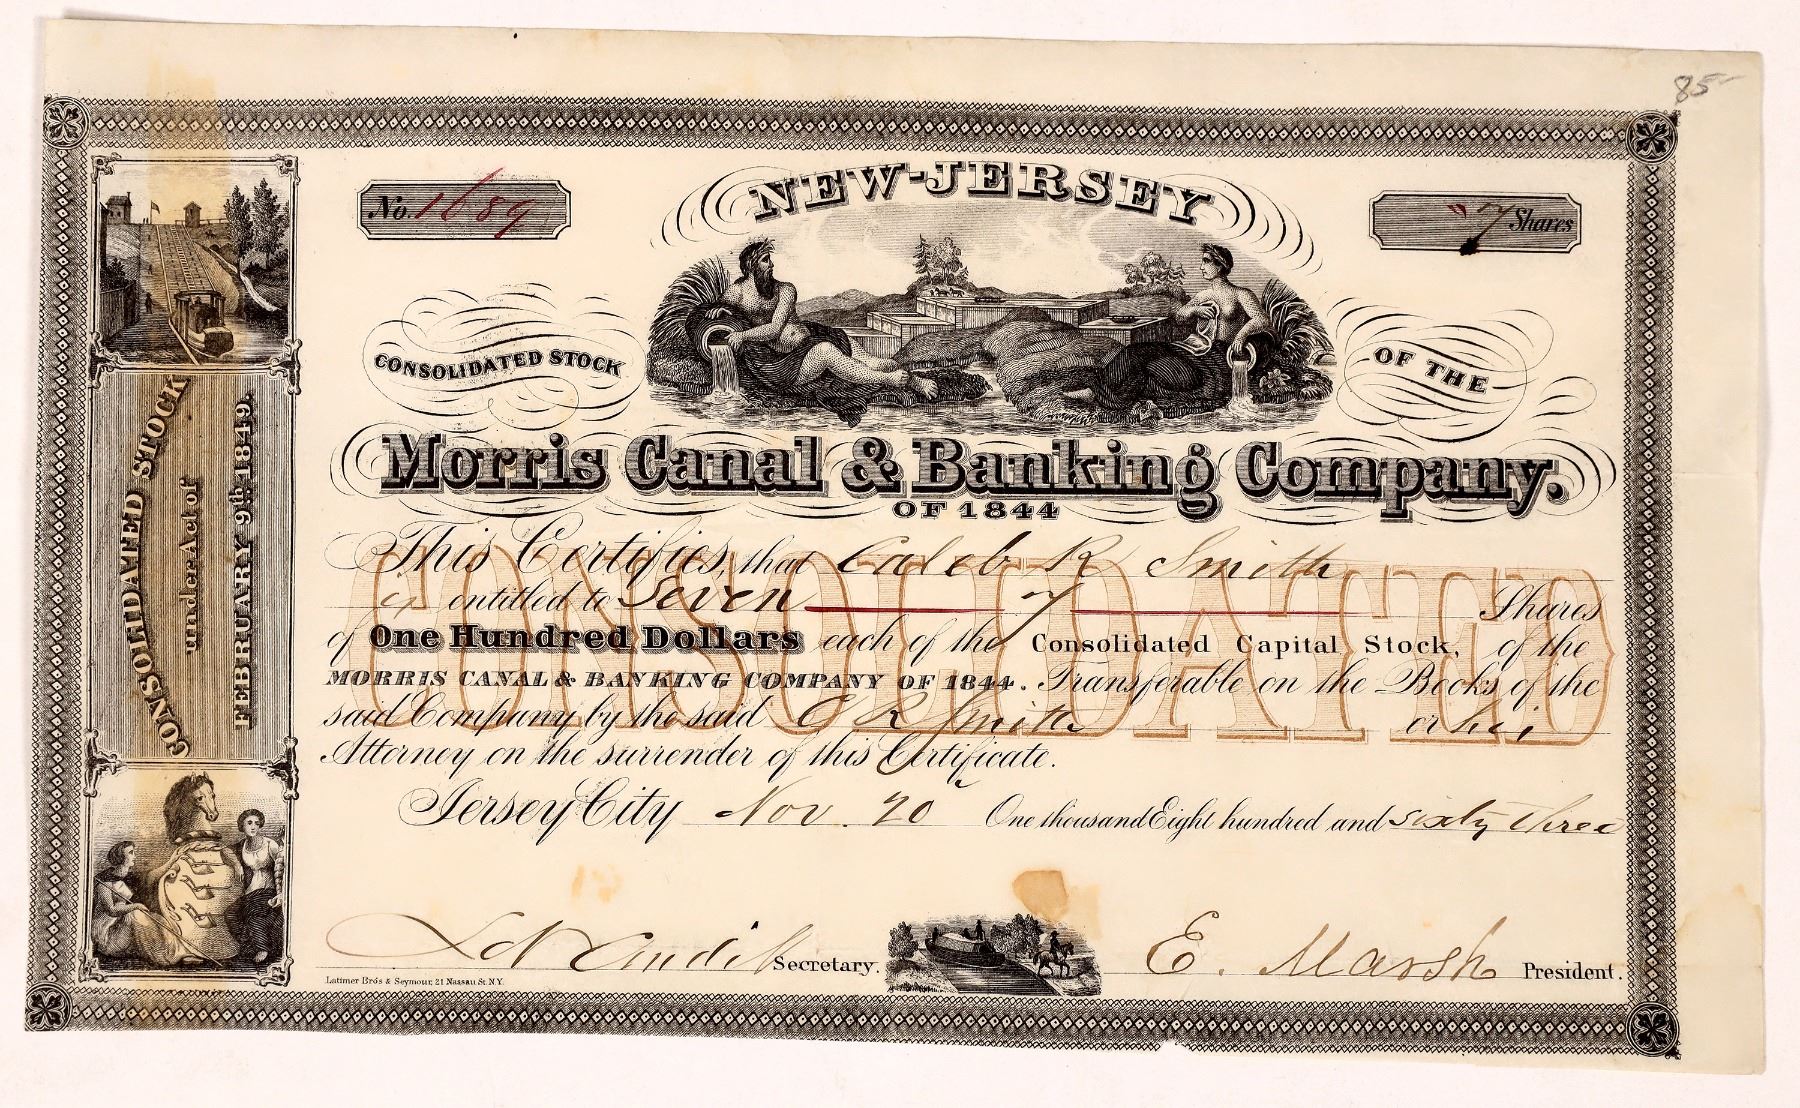 85
NEW-JERSEY
No. 1689
"7 Shares
CONSOLIDATED STOCK
OF THE
Morris Canal & Banking Company.
OF 1844
This Certifies, that Caleb R Smith
is entitled to Seven 7 Shares
of One Hundred Dollars each of the Consolidated Capital Stock, of the
MORRIS CANAL & BANKING COMPANY OF 1844. Transferable on the Books of the
said Company by the said C R Smith or his
Attorney on the surrender of this Certificate.
CONSOLIDATED
Jersey City Nov. 20 One thousand Eight hundred and sixty three
Secretary.
E. Marsh President.
Latimer Bros & Seymour, 21 Nassau St. N.Y.
CONSOLIDATED STOCK
under Act of
FEBRUARY 9th 1849.